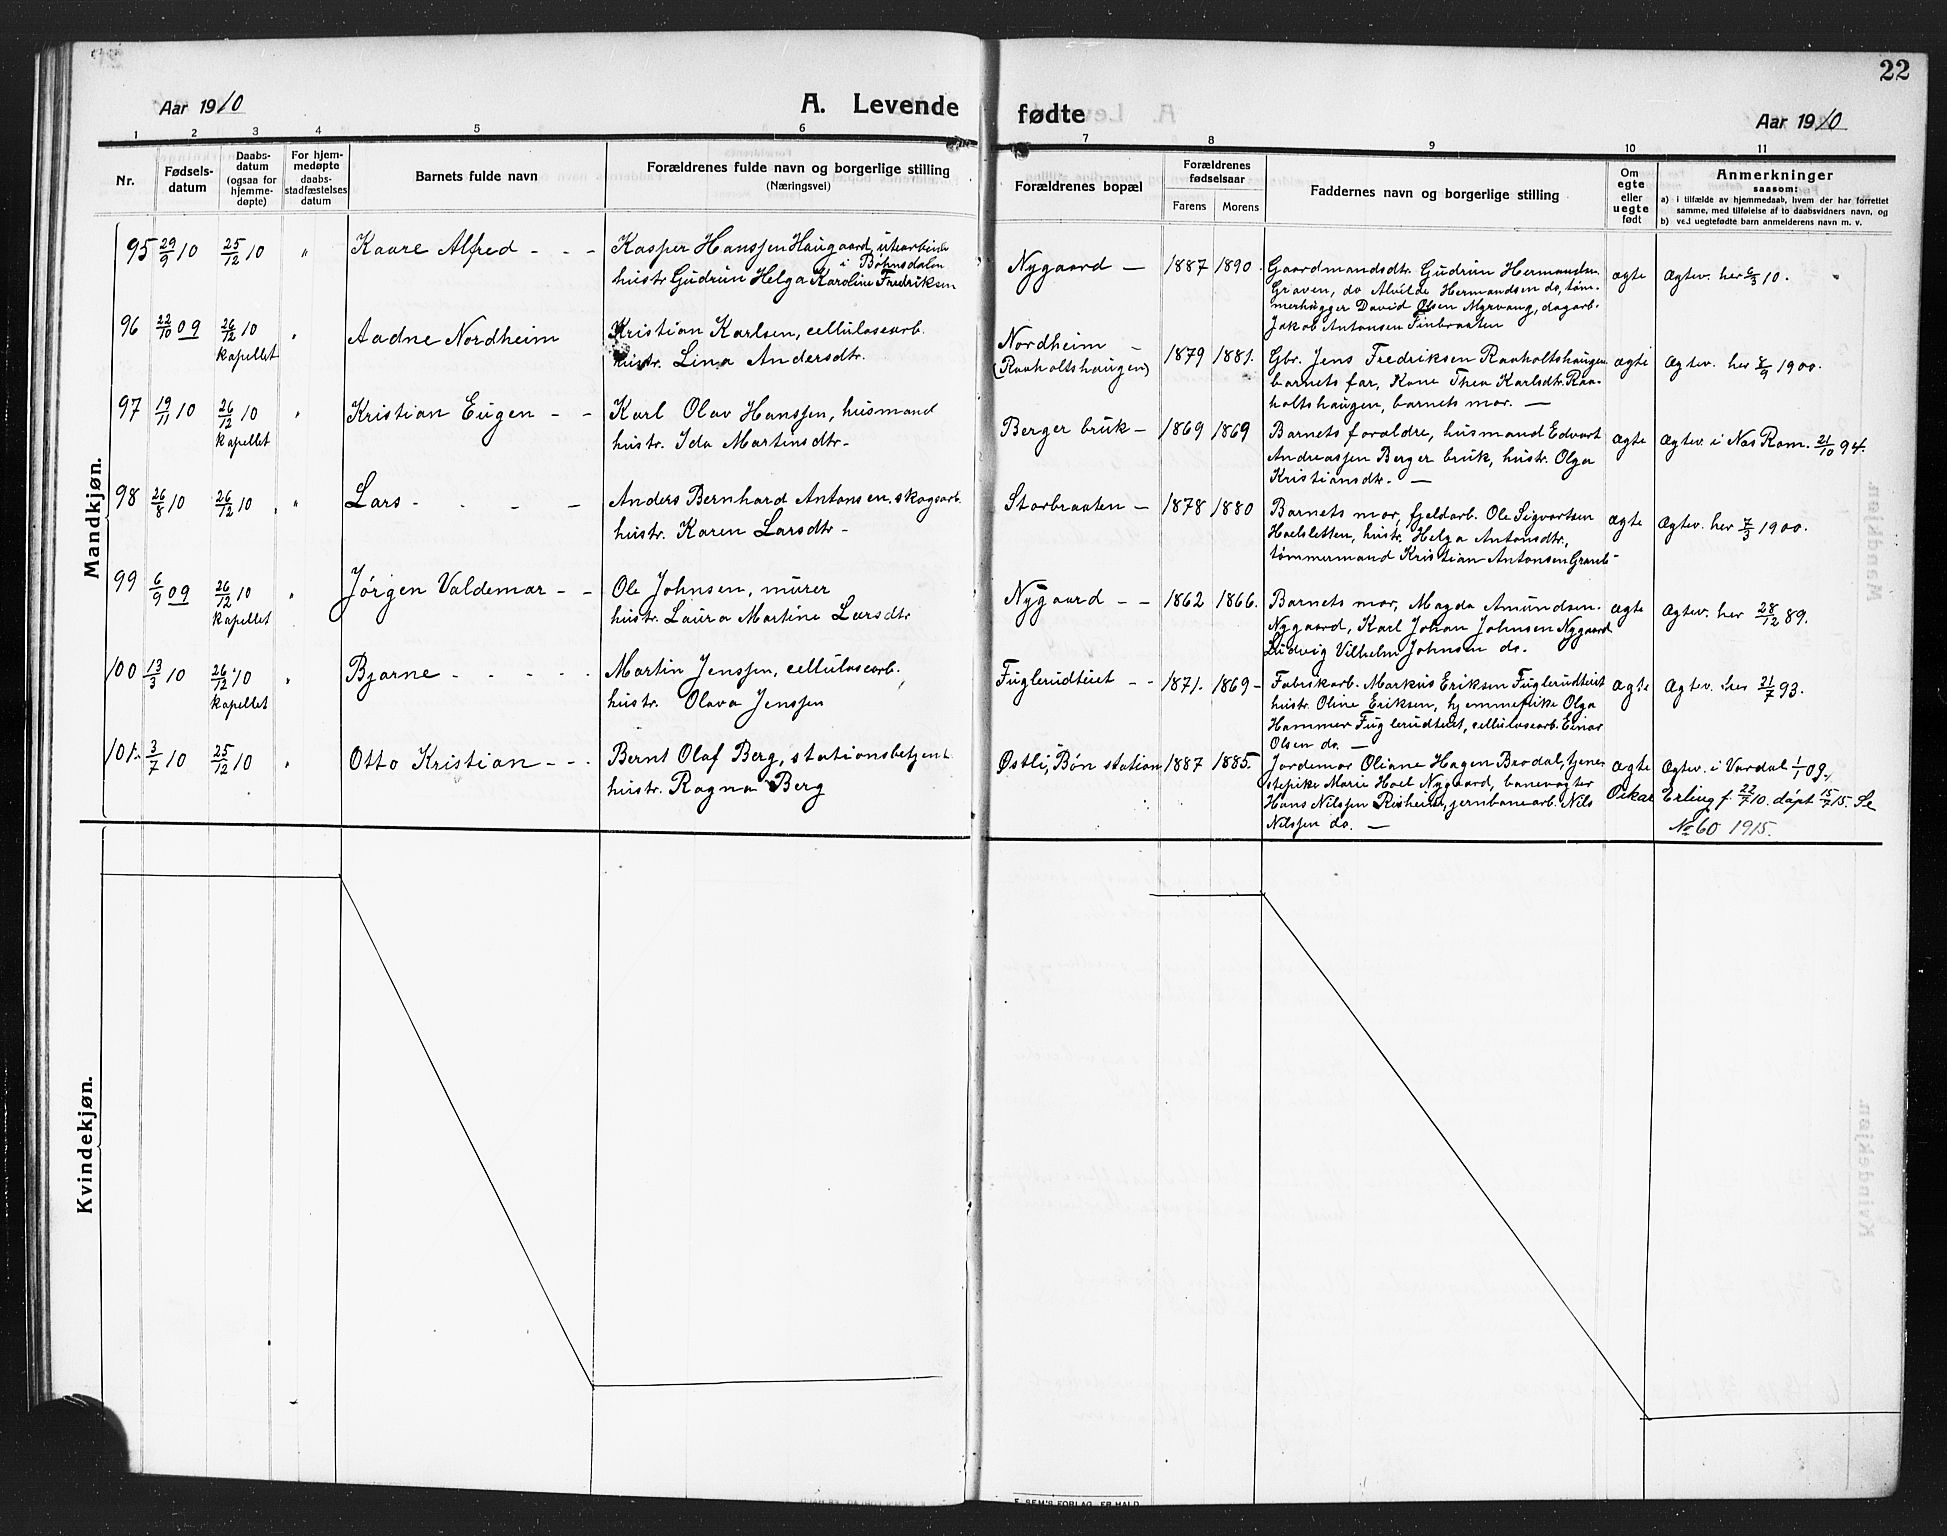 22
Aar 1910
A. Levende fødte
Aar 1910
1 2 3 4 5 6 7 8 9 10 11
Nr.
Fødsels-
datum
Daabs-
datum
(ogsaa for
hjemme-
døpte)
For hjem-
medøpte
daabs-
stadfæstelses
datum
Barnets fulde navn
Forældrenes fulde navn og borgerlige stilling
(Næringsvei)
Forældrenes bopæl
Forældrenes
fødselsaar
Farens Morens
Faddernes navn og borgerlige stilling
Om
egte
eller
uegte
født
Anmerkninger
saasom:
a) i tilfælde av hjemmedaab, hvem der har forrettet
samme, med tilføielse av to daabsvidners navn, og
b) ved uegtefødte barn anmelderens navn m. v.
Mandkjøn.
95 29/9 10 25/12 10 " Kaare Alfred - - -
Kasper Hanssen Haugaard, utearbeider
i Bøhnsdalen
hustr. Gudrun Helga Karoline Fredriksen
Nygaard - 1887 1890.
Gaardmandsdtr. Gudrun Hermandsen
Graven, do Alvilde Hermandsen do, tøm-
merhugger David Olsen Myrvang, dagarb.
Jakob Antonsen Finbraaten
ægte
Ægtev. her 6/3 10. "
96 22/10 09 26/12 10 " Aadne Nordheim
kapellet
Kristian Karlsen, cellulosearb.
hustr. Lina Andersdtr.
Nordheim -
(Raaholtshaugen)
1879 1881.
Gbr. Jens Fredriksen Raaholtshaugen
barnets far, Kone Thea Karlsdtr. Raa-
holtshaugen, barnets mor. -
ægte
Ægtev. her 8/9 1900.
97 19/11 10 26/12 10 " Kristian Eugen - -
kapellet
Karl Olav Hanssen, husmand
hustr. Ida Martinsdtr -
Berger bruk - 1869 1869
Barnets forældre, husmand Edvart
Andreassen Berger bruk, hustr. Olga
Kristiansdtr. -
ægte
Ægtev. i Nes Rom. 21/10 94.
98 26/8 10 26/12 10 " Lars - - - -
Anders Bernhard Antonsen, skogsarb.
hustr. Karen Larsdtr -
Storbraaten - 1878 1880
Barnets mor, fjeldarb. Ole Sigvartsen
Hoelsletten, hustr. Helga Antonsdtr.,
tømmermand Kristian Antonsen
ægte
Ægtev. her 7/3 1900.
99 6/9 09 26/12 10 " Jørgen Valdemar - -
kapellet
Ole Johnsen, murer
hustr. Laura Martine Larsdtr
Nygaard - - 1862 1866.
Barnets mor, Magda Amundsen
Nygaard, Karl Johan Johnsen Nygaard
Ludvig Vilhelm Johnsen do.
ægte
Ægtev. her 28/12 89.
100 13/3 10 26/12 10 " Bjarne - - - - -
kapellet
Martin Jenssen, cellulosearb.
hustr. Olava Jenssen
Fuglerudteiet - - 1871. 1869 -
Fabrikarb. Markus Eriksen Fuglerudteiet
hustr. Oline Eriksen, hjemmepike Olga
Hammer Fuglerudteiet, cellulosearb. Einar
Olsen do. -
ægte
Ægtev. her 21/7 93.
101. 3/7 10 25/12 10 " Otto Kristian - - -
Bernt Olaf Berg, stationsbetjent
hustr. Ragna Berg
Østli, Bøn station 1887 1885.
Jordemor Oliane Hagen Brodal, tjene-
stepike Marie Hoel Nygaard, banevogter
Hans Nilssen Risheim, jernbanearb. Nils
Nilssen do. -
ægte
Ægtev. i Vardal 1/1 09.
Oskar Erling f. 22/7 10. døpt 15/7 15. Se
№ 60 1915.
Kvindekjøn.